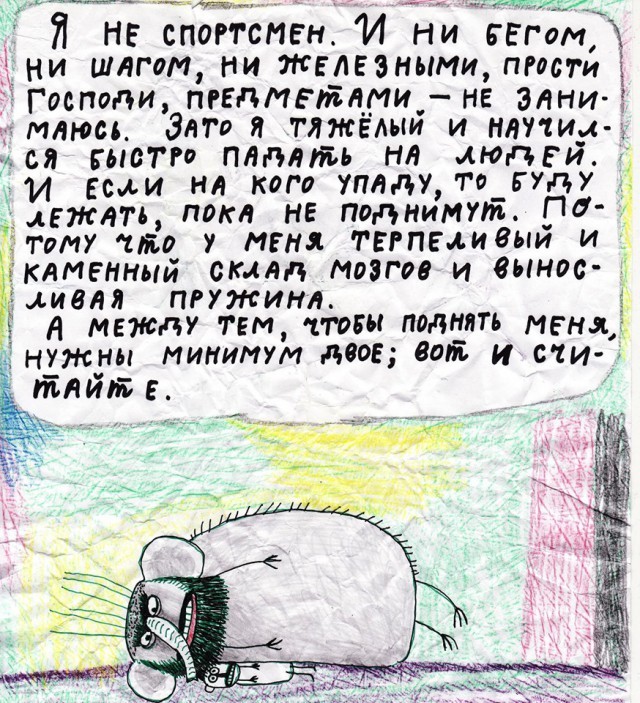 Я НЕ СПОРТСМЕН. И НИ БЕГОМ,
НИ ШАГОМ, НИ ЖЕЛЕЗНЫМИ, ПРОСТИ
ГОСПОДИ, ПРЕДМЕТАМИ — НЕ ЗАНИ-
МАЮСЬ. ЗАТО Я ТЯЖЁЛЫЙ И НАУЧИЛ-
СЯ БЫСТРО ПАДАТЬ НА ЛЮДЕЙ.
И ЕСЛИ НА КОГО УПАДУ, ТО БУДУ
ЛЕЖАТЬ, ПОКА НЕ ПОДНИМУТ. ПО-
ТОМУ ЧТО У МЕНЯ ТЕРПЕЛИВЫЙ И
КАМЕННЫЙ СКЛАД МОЗГОВ И ВЫНОС-
ЛИВАЯ ПРУЖИНА.
А МЕЖДУ ТЕМ, ЧТОБЫ ПОДНЯТЬ МЕНЯ,
НУЖНЫ МИНИМУМ ДВОЕ; ВОТ И СЧИ-
ТАЙТЕ.